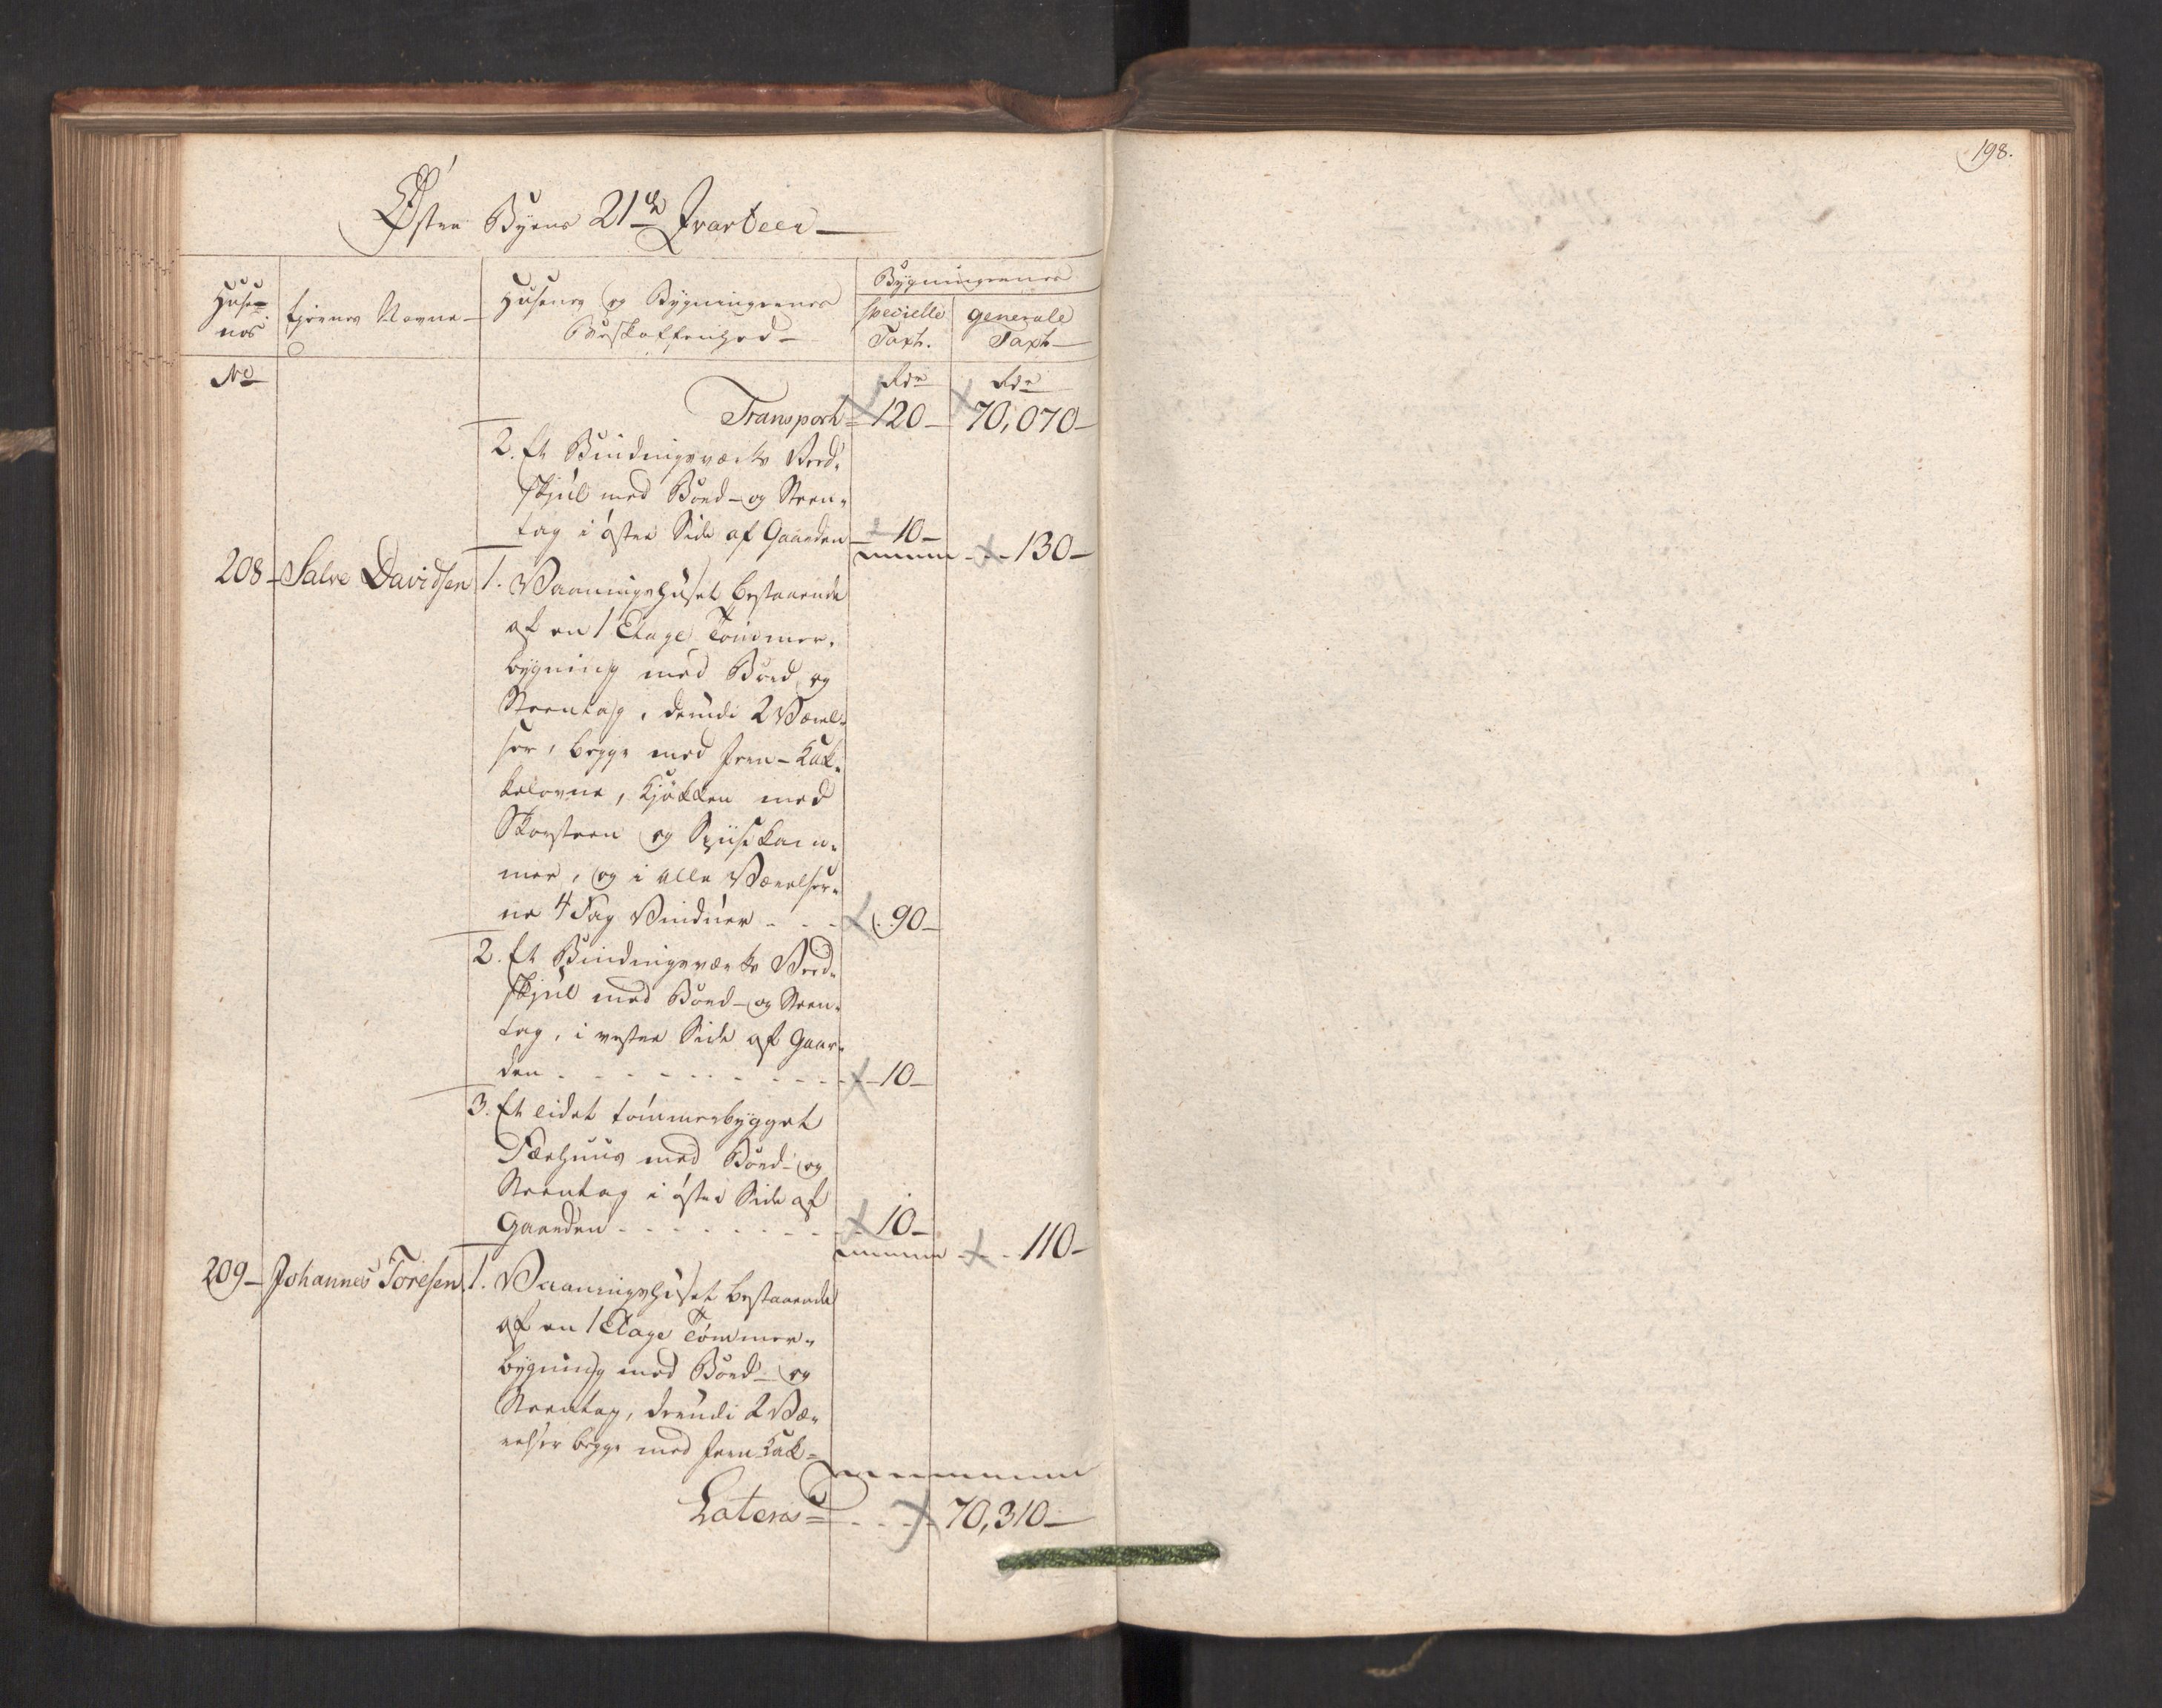 198.
Østre Byens 21de Qvarteer
Huse-
nes
Ejernes Navne
Husenes og Bygningernes
Beskaffenhed
Bygningernes
specielle
Taxt.
generale
Taxt
No
Rdr
Rdr
Transport = 120 - 70,070 -
2. Et Bindingsværks Ved-
skjul med Bord- og Steen-
tag i østre Side af Gaarden - 10 -
130 -
208 - Salve Davidsen 1. Vaaningshuset bestaaende
af en 1 Etage Tømmer-
bygning med Bord og
Steentag, derudi 2 Værel-
ser, begge med Jern-Kak-
kelovne, Kjøkken med
Skorsteen og Spiisekam-
mer, og i alle Værelser-
ne 4 Fag Vinduer - - - 90 -
2. Et Bindingsværks Ved-
skjul med Bord- og Steen-
tag, i vestre Side af Gaar-
den - - - 10 -
3. Et lidet tømmerbygget
Fæehuus med Bord- og
Steentag i østre Side af
Gaarden - - - 10 -
110 -
209 - Johannes Toresen 1. Vaaningshuset bestaaende
af en 1 Etage Tømmer-
bygning med Bord- og
Steentag, derudi 2 Væ-
relser begge med Jern Kak-
Latera = - - - 70,310 -